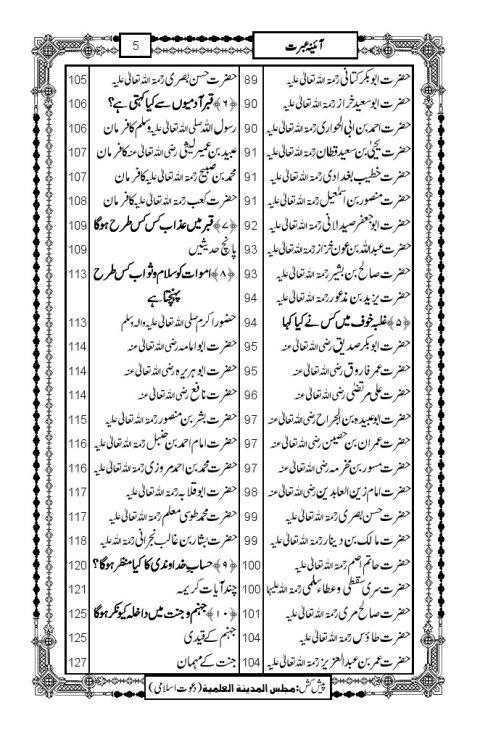 آئینۂ عبرت
5
حضرت ابوبکر کتانی رحمۃ اللہ تعالیٰ علیہ 89
حضرت ابو سعید خراز رحمۃ اللہ تعالیٰ علیہ 90
حضرت احمد بن ابی الحواری رحمۃ اللہ تعالیٰ علیہ 90
حضرت یحییٰ بن سعید قطان رحمۃ اللہ تعالیٰ علیہ 91
حضرت خطیب بغدادی رحمۃ اللہ تعالیٰ علیہ 91
حضرت منصور بن اسمٰعیل رحمۃ اللہ تعالیٰ علیہ 91
حضرت ابوجعفر صیدلانی رحمۃ اللہ تعالیٰ علیہ 92
حضرت عبداللہ بن عون خزاز رحمۃ اللہ تعالیٰ علیہ 93
حضرت صالح بن بشیر رحمۃ اللہ تعالیٰ علیہ 93
حضرت یزید بن مذعور رحمۃ اللہ تعالیٰ علیہ 94
﴿۵﴾ غلبۂ خوف میں کس نے کیا کہا 94
حضرت ابوبکر صدیق رضی اللہ تعالیٰ عنہ 95
حضرت عمر فاروق رضی اللہ تعالیٰ عنہ 95
حضرت علی مرتضیٰ رضی اللہ تعالیٰ عنہ 96
حضرت ابوعبیدہ بن الجراح رضی اللہ تعالیٰ عنہ 97
حضرت عمران بن حصین رضی اللہ تعالیٰ عنہ 97
حضرت مسور بن مخرمہ رضی اللہ تعالیٰ عنہ 97
حضرت امام زین العابدین رضی اللہ تعالیٰ عنہ 98
حضرت حسن بصری رحمۃ اللہ تعالیٰ علیہ 99
حضرت مالک بن دینار رحمۃ اللہ تعالیٰ علیہ 99
حضرت حاتم اصم رحمۃ اللہ تعالیٰ علیہ 100
حضرت سری سقطی و عطاء سلمی رحمۃ اللہ علیہا 100
حضرت صالح مری رحمۃ اللہ تعالیٰ علیہ 101
حضرت طاؤس رحمۃ اللہ تعالیٰ علیہ 104
حضرت عمر بن عبدالعزیز رحمۃ اللہ تعالیٰ علیہ 104
حضرت حسن بصری رحمۃ اللہ تعالیٰ علیہ 105
﴿۶﴾ قبر آدمیوں سے کیا کہتی ہے؟ 106
رسول اللہ صلی اللہ تعالیٰ علیہ وسلم کا فرمان 106
عبید بن عمیر لیثی رضی اللہ تعالیٰ عنہ کا فرمان 107
محمد بن صبیح رحمۃ اللہ تعالیٰ علیہ کا فرمان 107
حضرت کعب رحمۃ اللہ تعالیٰ علیہ کا فرمان 108
﴿۷﴾ قبر میں عذاب کس کس طرح ہوگا 109
پانچ حدیثیں 109
﴿۸﴾ اموات کو سلام و ثواب کس طرح 113
پہنچتا ہے
حضور اکرم صلی اللہ تعالیٰ علیہ والہ وسلم 113
حضرت ابوامامہ رضی اللہ تعالیٰ عنہ 114
حضرت ابوہریرہ رضی اللہ تعالیٰ عنہ 114
حضرت نافع رضی اللہ تعالیٰ عنہ 114
حضرت بشر بن منصور رحمۃ اللہ تعالیٰ علیہ 115
حضرت امام احمد بن حنبل رحمۃ اللہ تعالیٰ علیہ 116
حضرت محمد بن احمد مروزی رحمۃ اللہ تعالیٰ علیہ 116
حضرت ابوقلابہ رحمۃ اللہ تعالیٰ علیہ 117
حضرت محمد طوسی معلم رحمۃ اللہ تعالیٰ علیہ 117
حضرت بشار بن غالب نجرانی رحمۃ اللہ تعالیٰ علیہ 118
﴿۹﴾ حساب خداوندی کا کیا منظر ہوگا؟ 120
چند آیات کریمہ 121
﴿۱۰﴾ جہنم و جنت میں داخلہ کیونکر ہوگا 125
جہنم کے قیدی 125
جنت کے مہمان 127
پیش کش: مجلس المدینۃ العلمیۃ (دعوت اسلامی)